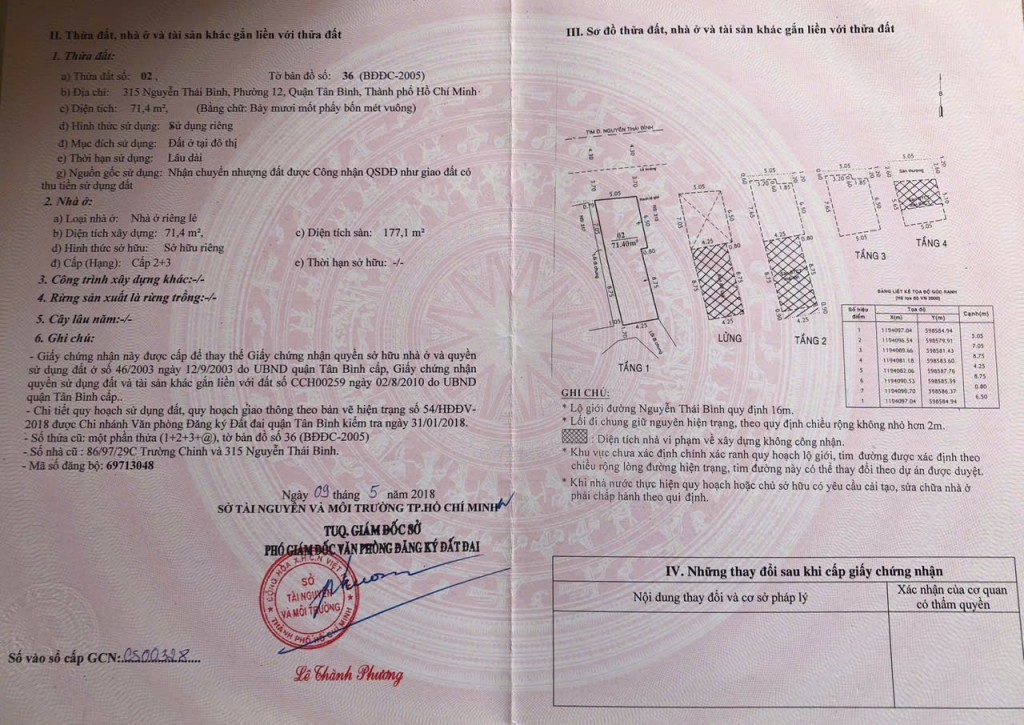 II. Thửa đất, nhà ở và tài sản khác gắn liền với thửa đất
1. Thửa đất:
a) Thửa đất số: 02 , Tờ bản đồ số: 36 (BĐĐC-2005)
b) Địa chỉ: 315 Nguyễn Thái Bình, Phường 12, Quận Tân Bình, Thành phố Hồ Chí Minh
c) Diện tích: 71,4 m², (Bằng chữ: Bảy mươi mốt phẩy bốn mét vuông)
d) Hình thức sử dụng: Sử dụng riêng
đ) Mục đích sử dụng: Đất ở tại đô thị
e) Thời hạn sử dụng: Lâu dài
g) Nguồn gốc sử dụng: Nhận chuyển nhượng đất được Công nhận QSDĐ như giao đất có
thu tiền sử dụng đất
2. Nhà ở:
a) Loại nhà ở: Nhà ở riêng lẻ
b) Diện tích xây dựng: 71,4 m², c) Diện tích sàn: 177,1 m²
d) Hình thức sở hữu: Sở hữu riêng
đ) Cấp (Hạng): Cấp 2+3 e) Thời hạn sở hữu: -/-
3. Công trình xây dựng khác:-/-
4. Rừng sản xuất là rừng trồng:-/-
5. Cây lâu năm:-/-
6. Ghi chú:
- Giấy chứng nhận này được cấp để thay thế Giấy chứng nhận quyền sở hữu nhà ở và quyền
sử dụng đất ở số 46/2003 ngày 12/9/2003 do UBND quận Tân Bình cấp, Giấy chứng nhận
quyền sử dụng đất và tài sản khác gắn liền với đất số CCH00259 ngày 02/8/2010 do UBND
quận Tân Bình cấp..
- Chi tiết quy hoạch sử dụng đất, quy hoạch giao thông theo bản vẽ hiện trạng số 54/HĐĐV-
2018 được Chi nhánh Văn phòng Đăng ký Đất đai quận Tân Bình kiểm tra ngày 31/01/2018.
- Số thửa cũ: một phần thửa (1+2+3+@), tờ bản đồ số 36 (BĐĐC-2005)
- Số nhà cũ : 86/97/29C Trường Chinh và 315 Nguyễn Thái Bình.
- Mã số đăng bộ: 69713048
Ngày 09 tháng 5 năm 2018
SỞ TÀI NGUYÊN VÀ MÔI TRƯỜNG TP.HỒ CHÍ MINH
TUQ. GIÁM ĐỐC SỞ
PHÓ GIÁM ĐỐC VĂN PHÒNG ĐĂNG KÝ ĐẤT ĐAI
CỘNG HÒA X.H.C.N VIỆT
SỞ
TÀI NGUYÊN
VÀ MÔI TRƯỜNG
THÀNH PHỐ HỒ CHÍ MINH
Lê Thành Phương
Số vào sổ cấp GCN: CS00328
III. Sơ đồ thửa đất, nhà ở và tài sản khác gắn liền với thửa đất
TIM Đ. NGUYỄN THÁI BÌNH
4.30
4.30
Lề đường
3.70
3.70
02
71.40m²
7.05
6.50
8.75
8.75
4.25
1.70
TẦNG 1
5.05
7.05
6.50
4.25
0.80
8.75
4.25
LỬNG
5.05
0.60
3.20
1.85
6.50
4.25
0.80
8.75
0.90
TẦNG 2
5.05
0.60
3.20
1.85
7.65
5.05
TẦNG 3
5.05
Sân thượng
5.65
5.05
TẦNG 4
BẢNG LIỆT KÊ TỌA ĐỘ GÓC RANH
(Hệ tọa độ VN 2000)
Số hiệu điểm Tọa độ Cạnh(m)
X(m) Y(m)
1 1194097.04 598584.94
5.05
2 1194096.54 598579.91
7.05
3 1194089.66 598581.43
8.75
4 1194081.18 598583.60
4.25
5 1194082.06 598587.76
8.75
6 1194090.53 598585.59
0.80
7 1194090.70 598586.37
6.50
1 1194097.04 598584.94
GHI CHÚ:
* Lộ giới đường Nguyễn Thái Bình quy định 16m.
* Lối đi chung giữ nguyên hiện trạng, theo quy định chiều rộng không nhỏ hơn 2m.
: Diện tích nhà vi phạm về xây dựng không công nhận.
* Khu vực chưa xác định chính xác ranh quy hoạch lộ giới, tim đường được xác định theo
chiều rộng lòng đường hiện trạng, tim đường này có thể thay đổi theo dự án được duyệt.
* Khi nhà nước thực hiện quy hoạch hoặc chủ sở hữu có yêu cầu cải tạo, sửa chữa nhà ở
phải chấp hành theo qui định.
IV. Những thay đổi sau khi cấp giấy chứng nhận
Nội dung thay đổi và cơ sở pháp lý
Xác nhận của cơ quan
có thẩm quyền